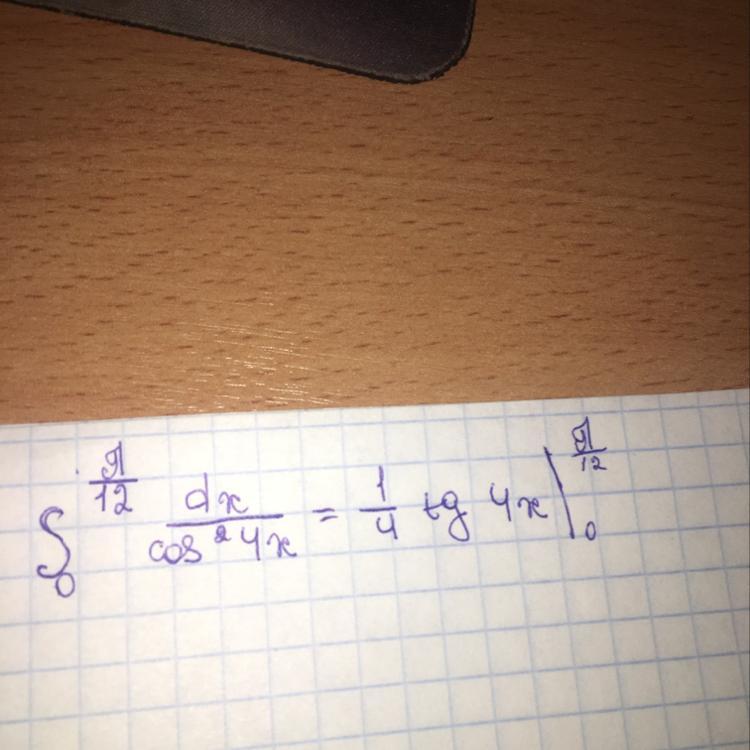 ∫₀^(π/12) dx/cos²4x = 1/4 tg 4x |₀^(π/12)